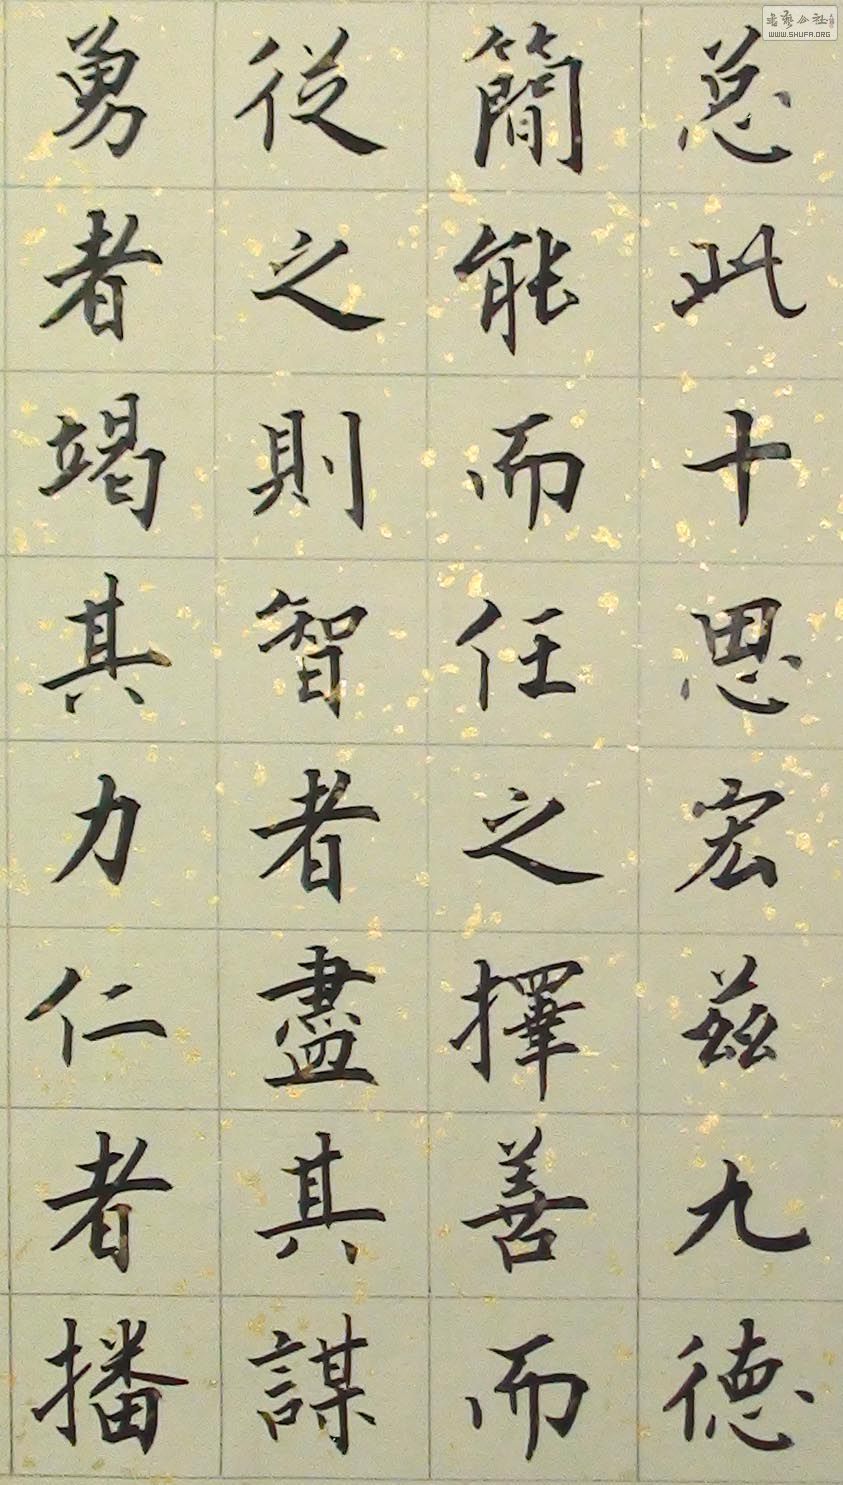 总此十思宏兹九德
簡能而任之擇善而
従之則智者盡其謀
勇者竭其力仁者播
书艺公社
WWW.SHUFA.ORG